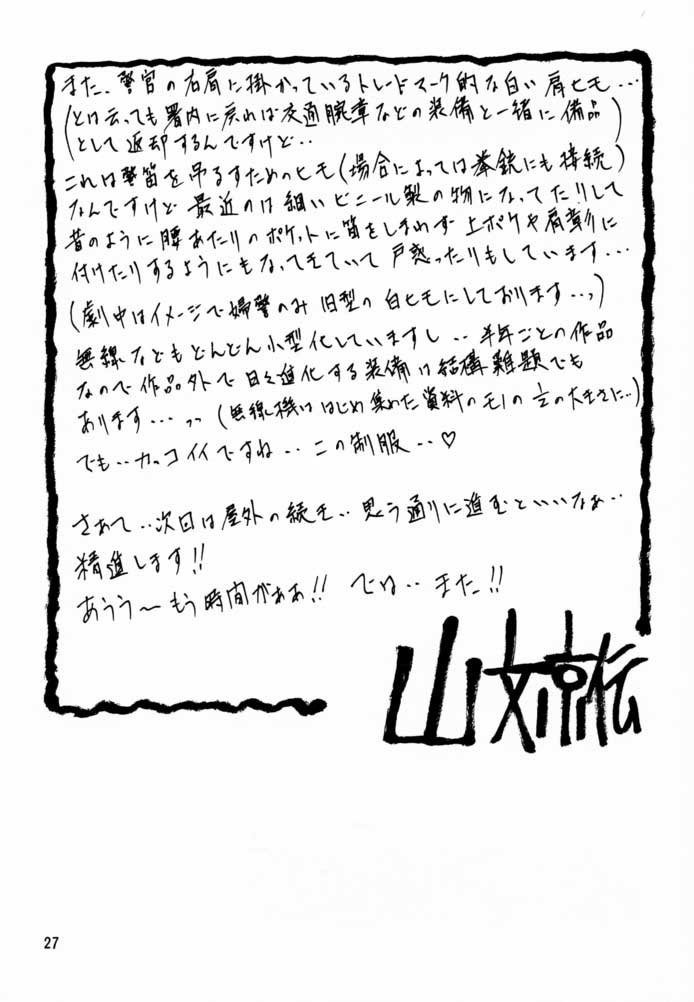 また、警官の右肩に掛かっているトレードマーク的な白い肩ヒモ…
(とは云っても署内に戻れば交通腕章などの装備と一緒に備品
として返却するんですけど‥)
これは警笛を吊るすためのヒモ(場合によっては拳銃にも接続)
なんですけど 最近のは細いビニール製の物になってたりして
昔のように腰あたりのポケットに笛をしまわず 上ポケや肩章に
付けたりするようにもなってきていて 戸惑ったりもしています…
(劇中はイメージで婦警のみ旧型の白ヒモにしております‥)
無線などもどんどん小型化していますし‥半年ごとの作品
なので作品外で日々進化する装備は結構難題でも
あります…(無線機ははじめ集めた資料のモノの½の大きさに‥)
でも‥カッコイイですね‥この制服‥♡
さあて‥次回は屋外の続きを‥思う通りに進むといいなぁ‥
精進します!!
あうう〜もう時間がああ!! では‥また!!
山文京伝
27